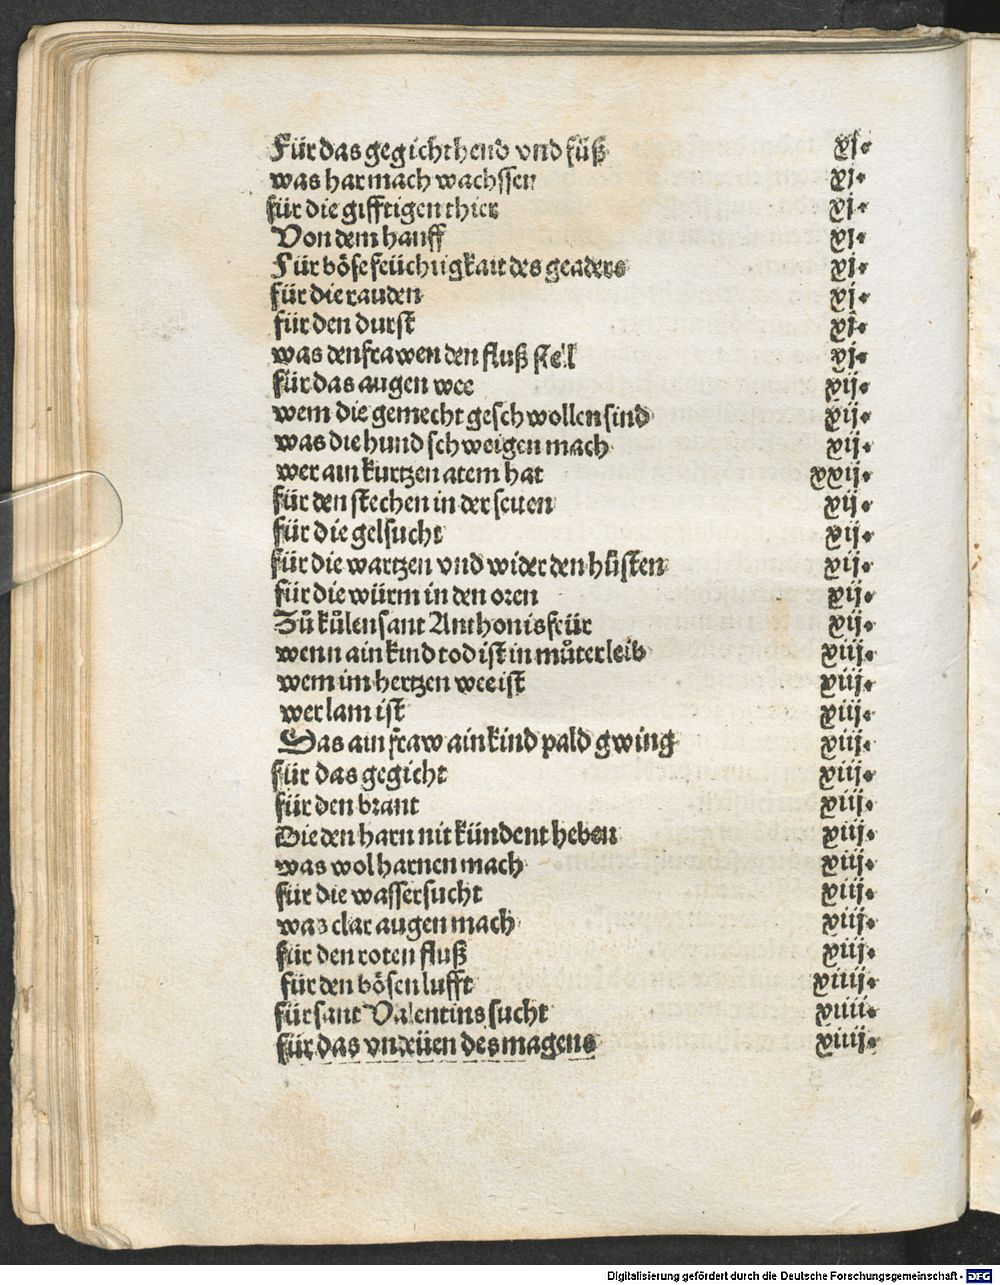 Für das gegicht hend vnd füß xj.
was har mach wachssen xj.
für die gifftigen thier xj.
Von dem hanff xj.
Für böse feüchtigkait des geaders xj.
für die rauden xj.
für den durst xj.
was den frawen den fluß stelt xj.
für das augen wee xij.
wem die gemecht geschwollen sind xij.
was die hund schweigen mach xij.
wer ain kurtzen atem hat xxij.
für den stechen in der seiten xij.
für die gelsucht xij.
für die wartzen vnd wider den hůsten xij.
für die würm in den oren xij.
Zů kůlen sant Anthonis feür xij.
wenn ain kind tod ist in můterleib xiij.
wem im hertzen wee ist xiij.
wer lam ist xiij.
Das ain fraw ain kind pald gwing xiij.
für das gegicht xiij.
für den brant xiij.
Die den harn nit kündent heben xiij.
was wol harnen mach xiij.
für die wassersucht xiij.
was clar augen mach xiij.
für den roten fluß xiij.
für den bösen lufft xiiij.
für sant Valentins sucht xiiij.
für das vndeüen des magens xiiij.
Digitalisierung gefördert durch die Deutsche Forschungsgemeinschaft - DFG